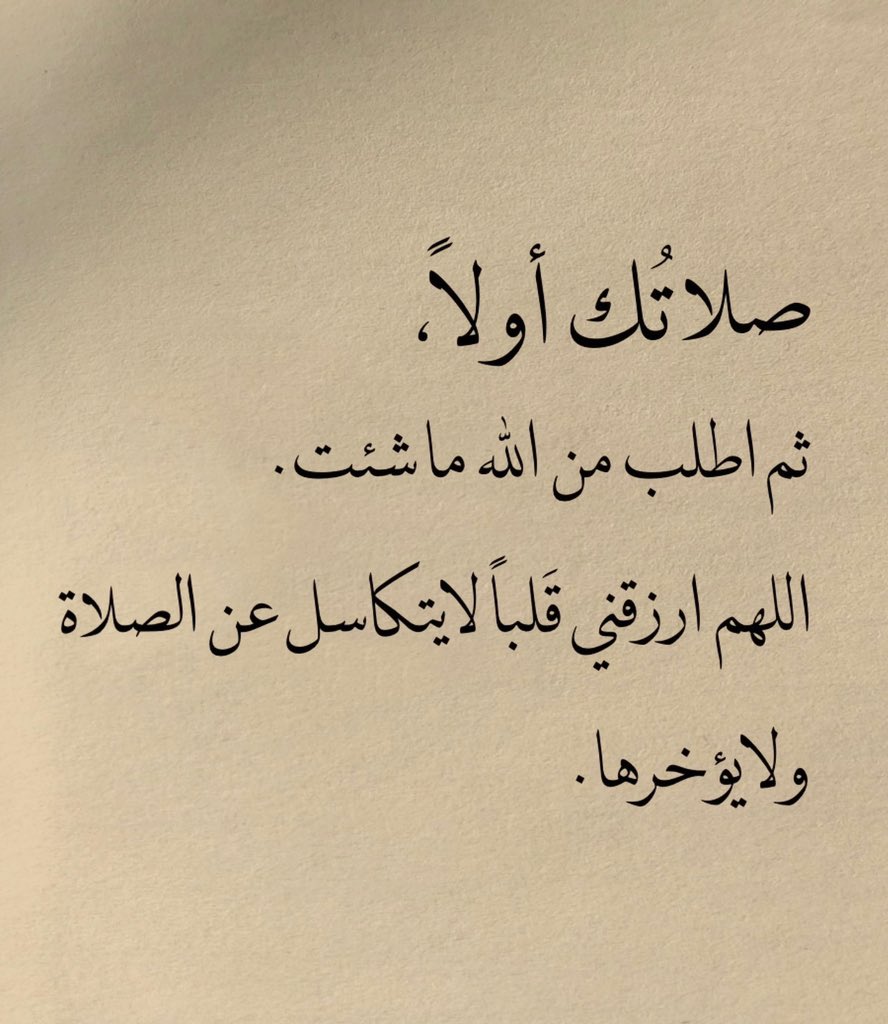 صلاتُك أولاً،
ثم اطلب من الله ما شئت.
اللهم ارزقني قَلباً لايتكاسل عن الصلاة
ولايؤخرها.